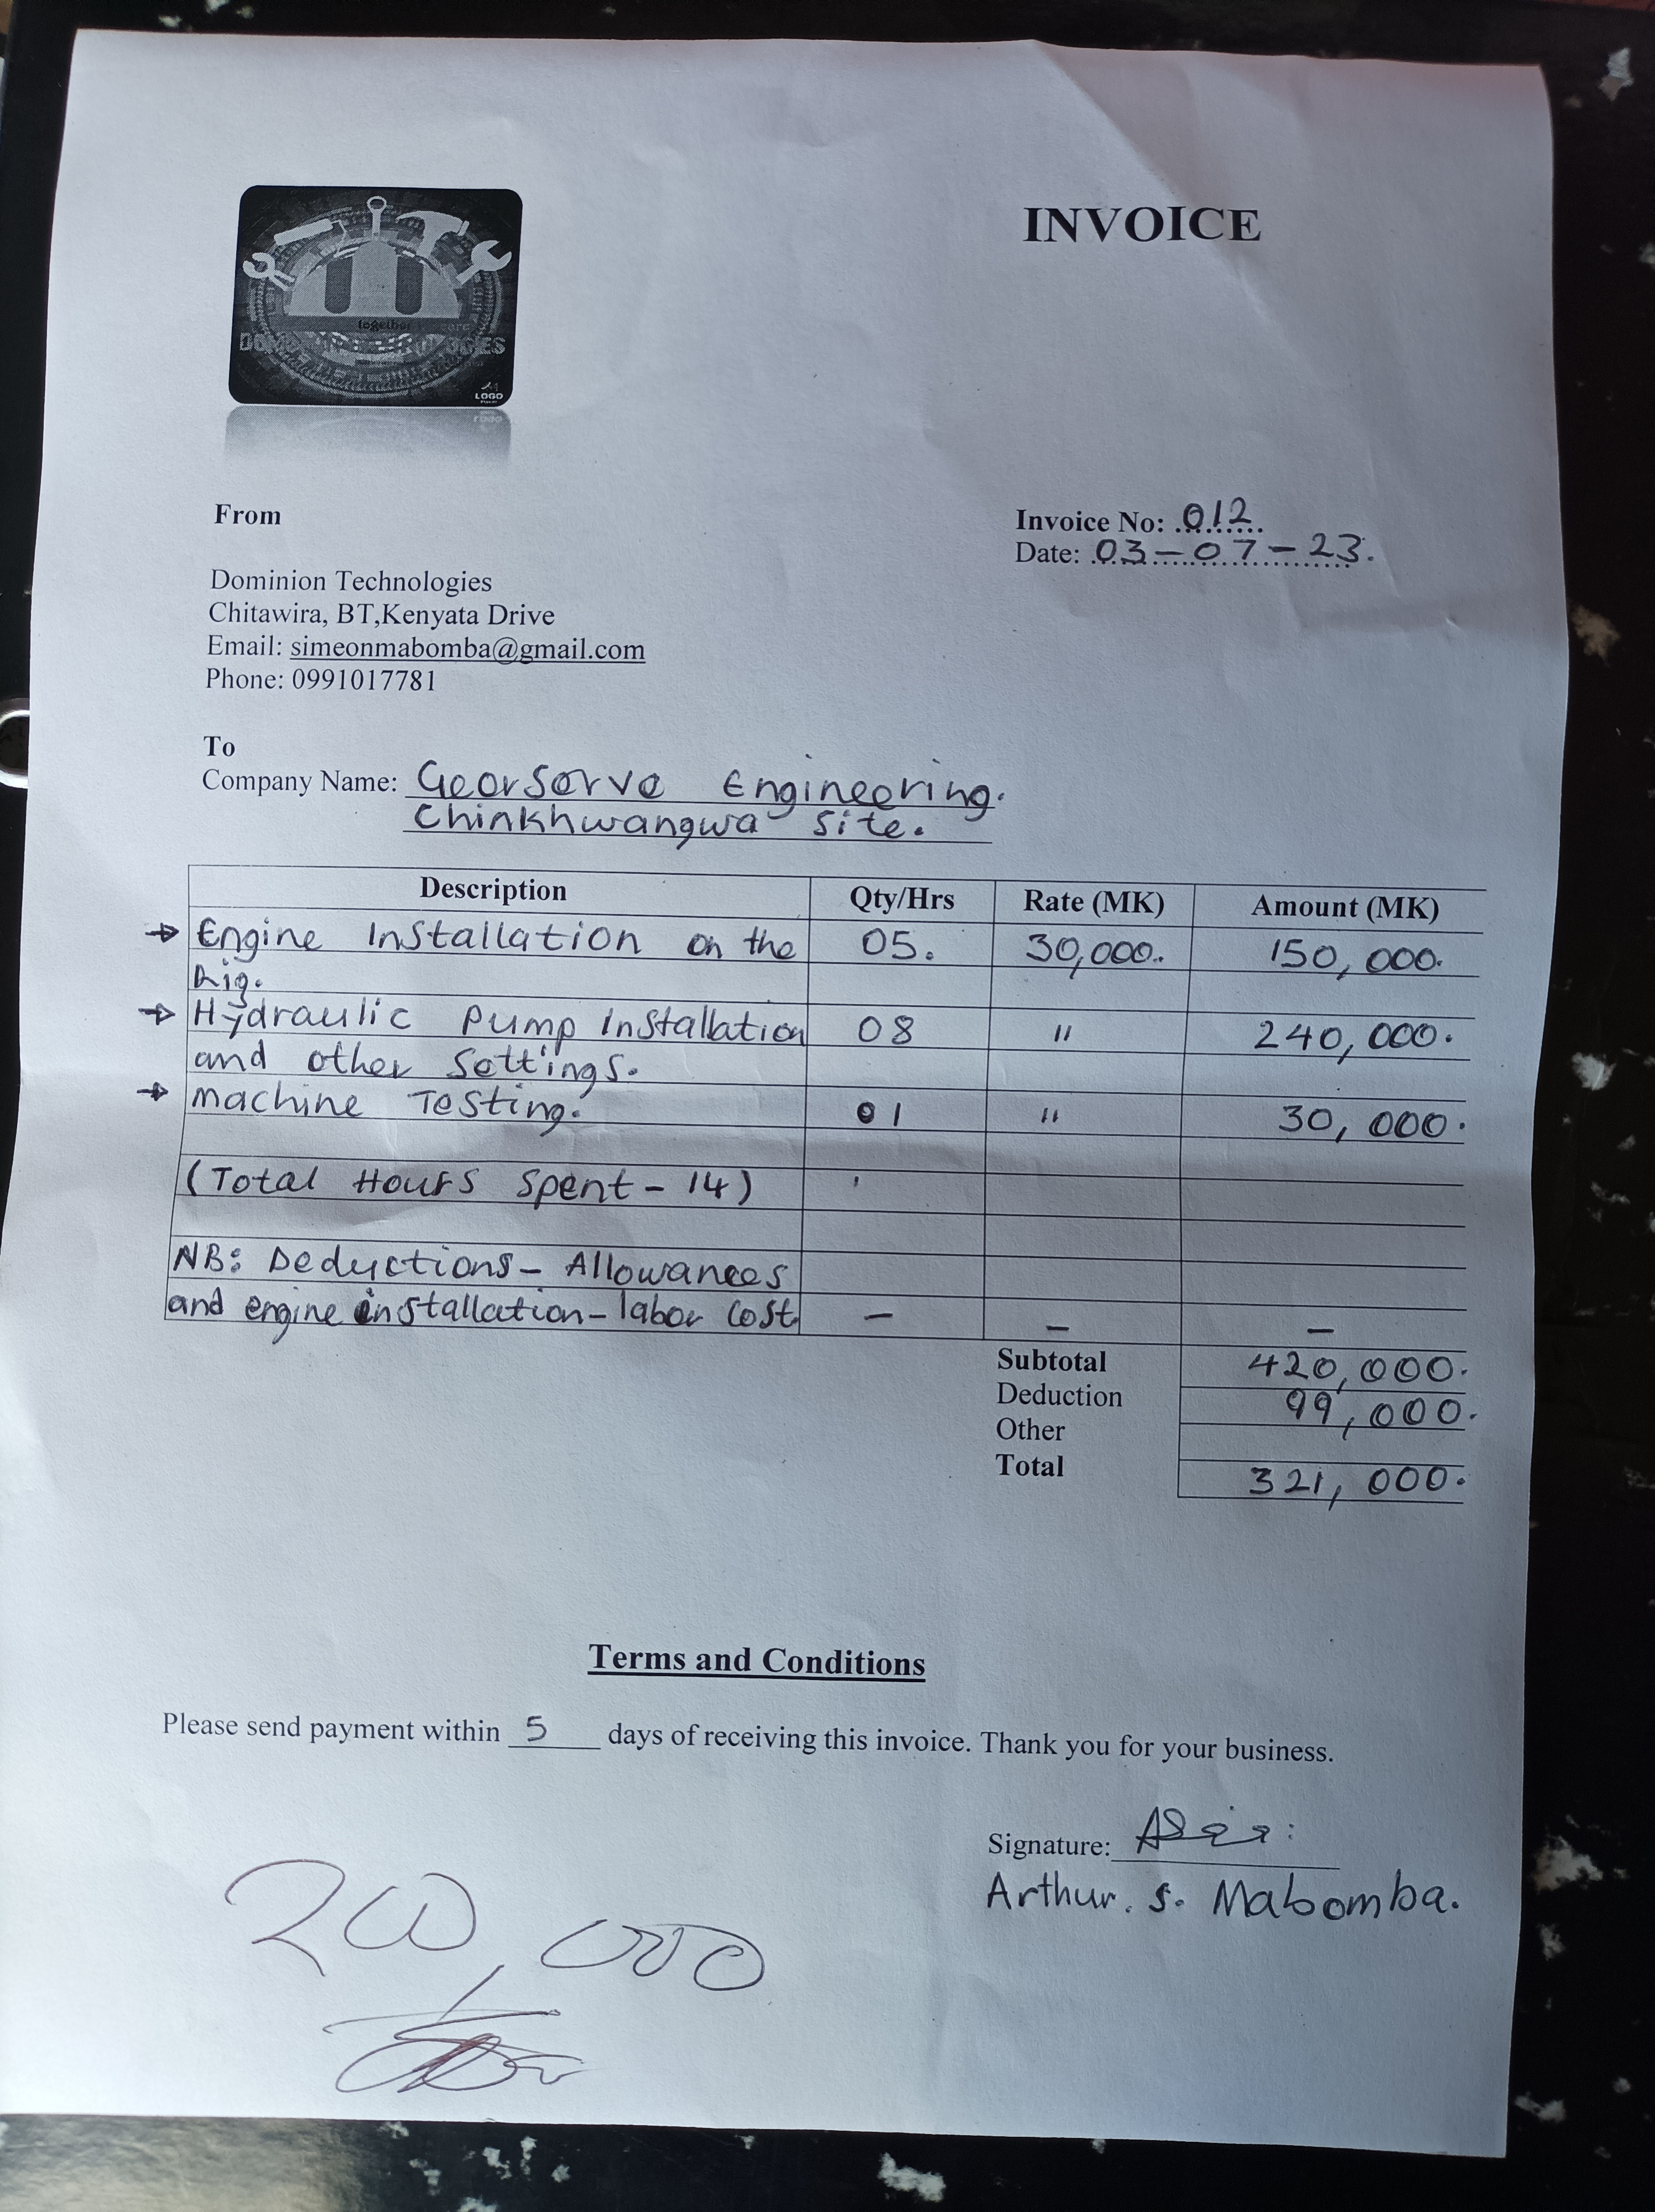 INVOICE
together
LOGO
From
Invoice No: 012
Date: 03-07-23.
Dominion Technologies
Chitawira, BT,Kenyata Drive
Email: simeonmabomba@gmail.com
Phone: 0991017781
To
Company Name: Georserve Engineering.
Chinkhwangwa site.
Description Qty/Hrs Rate (MK) Amount (MK)
→ Engine Installation on the 05. 30,000. 150,000.
Rig.
→ Hydraulic Pump Installation 08 " 240,000.
and other settings.
→ machine Testing. 01 " 30,000.
(Total Hours Spent - 14)
NB: Deductions - Allowances
and engine installation - labor cost - - -
Subtotal 420,000.
Deduction 99,000.
Other
Total 321,000.
Terms and Conditions
Please send payment within 5 days of receiving this invoice. Thank you for your business.
Signature:
Arthur. S. Mabomba.
200,000